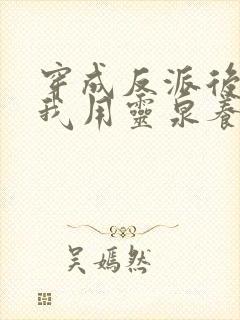 穿成反派後
我用靈泉養
吴嫣然